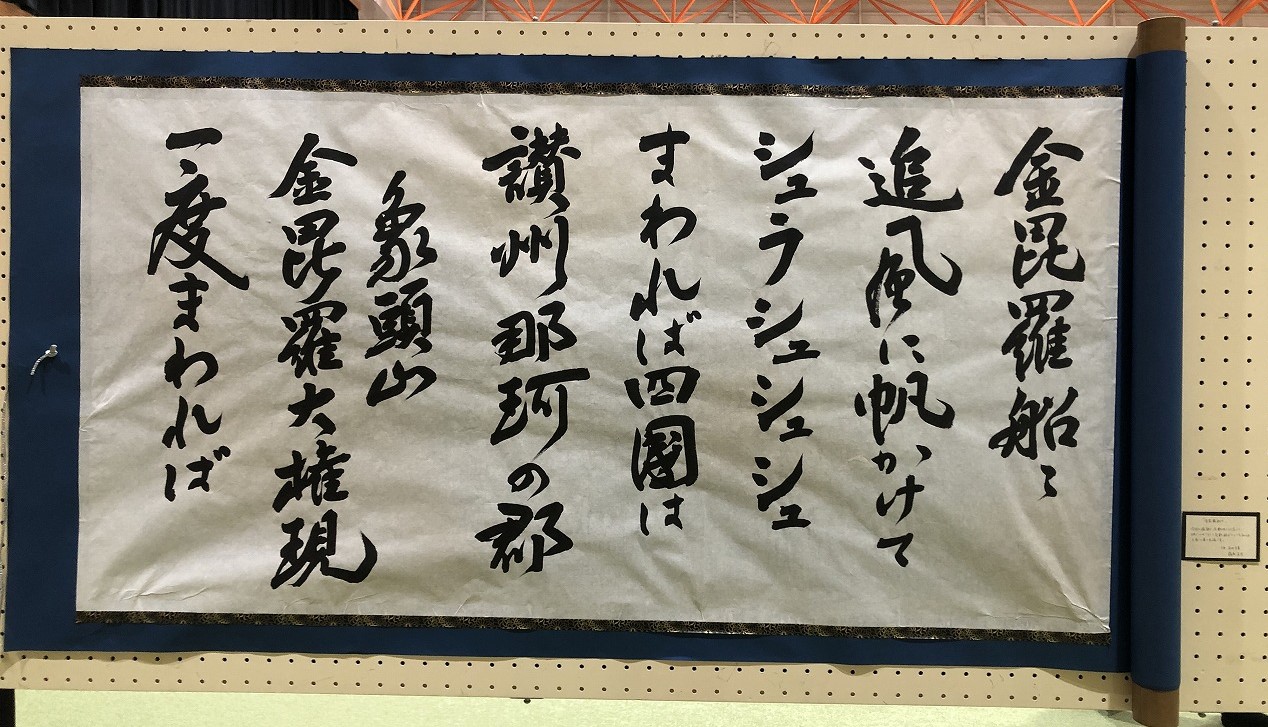 金毘羅船〻
追風に帆かけて
シュラシュシュシュ
まわれば四國は
讃州那珂の郡
象頭山
金毘羅大権現
一度まわれば